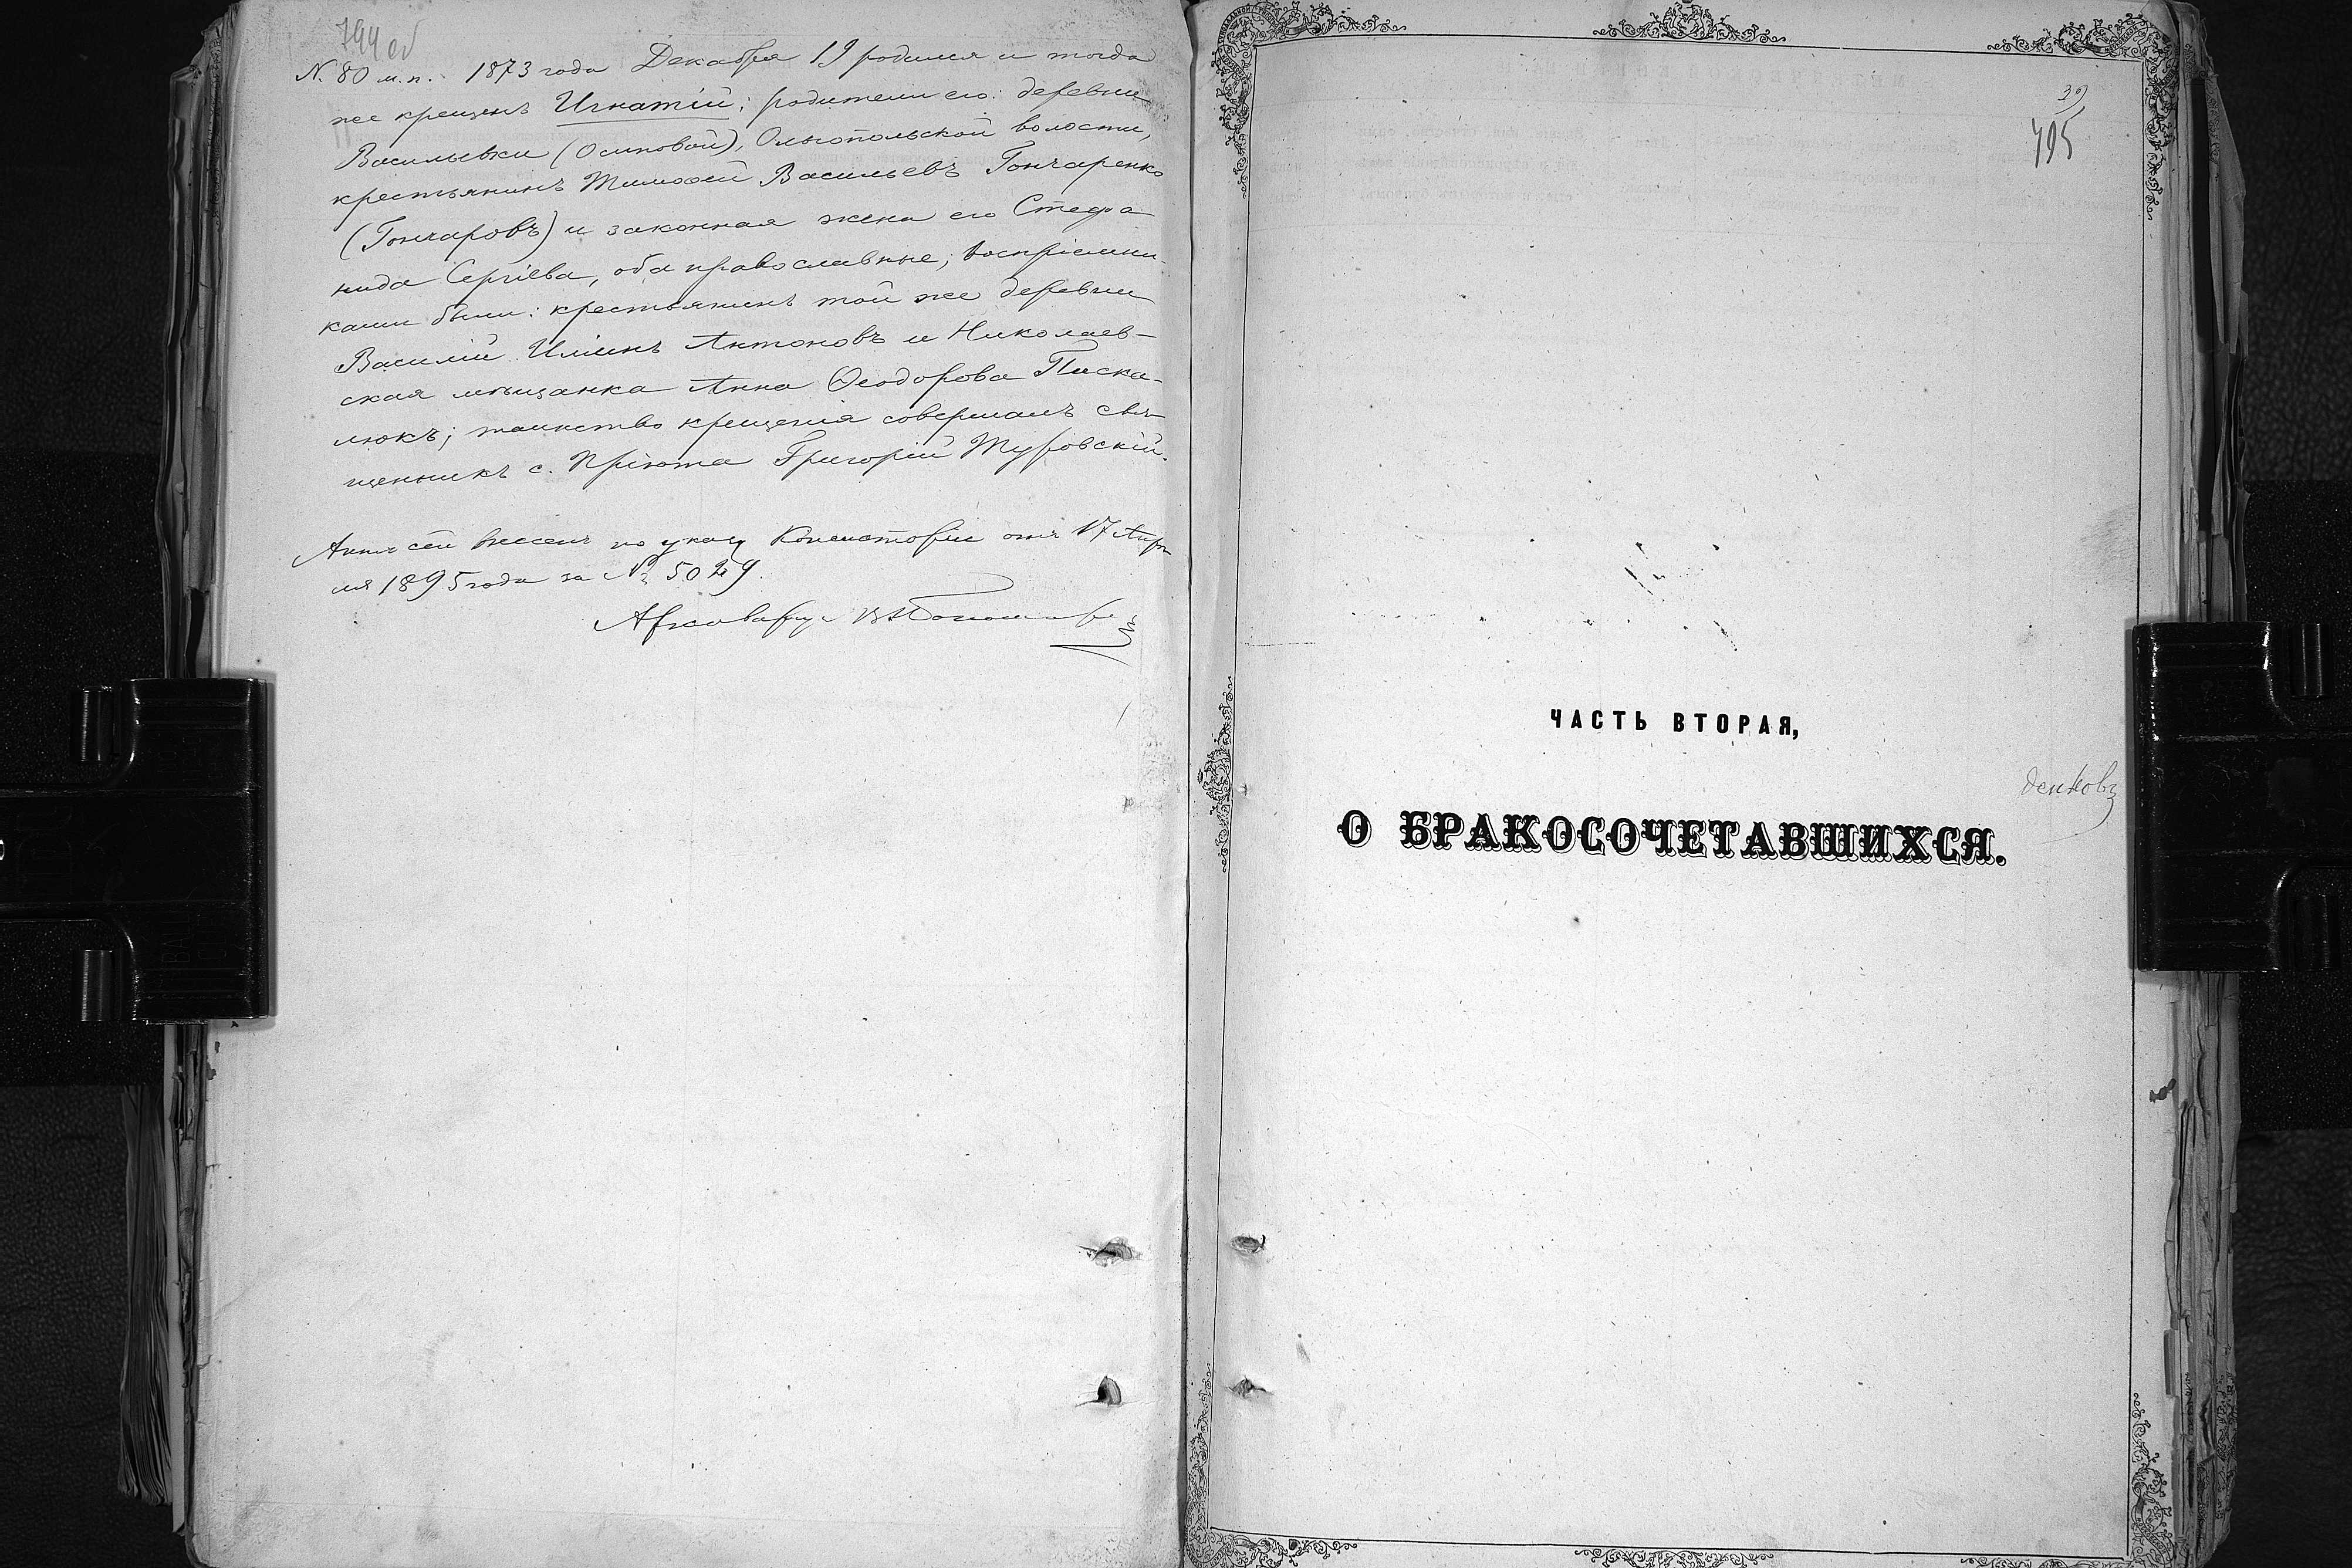 794 об
N. 80 м.п. 1873 года Декабря 19 родился и тогда
же крещенъ Игнатій; родители его: деревни
Васильевки (Осиповой), Ольгопольской волости,
крестьянинъ Тимофей Васильевъ Гончаренко
(Гончаровъ) и законная жена его Стефа
нида Сергіева, оба православные; воспріемни-
ками были: крестьянинъ той же деревни
Василій Иліинъ Антоновъ и Николаев-
ская мѣщанка Анна Ѳеодорова Паска-
люкъ; таинство крещенія совершалъ свя-
щенникъ с. Пріюта Григорій Туровскій.
Актъ сей внесенъ по указу Консисторіи отъ 17 Апрѣ
ля 1895 года за № 5029.
Архиваріус
39
795
ЧАСТЬ ВТОРАЯ,
О БРАКОСОЧЕТАВШИХСЯ.